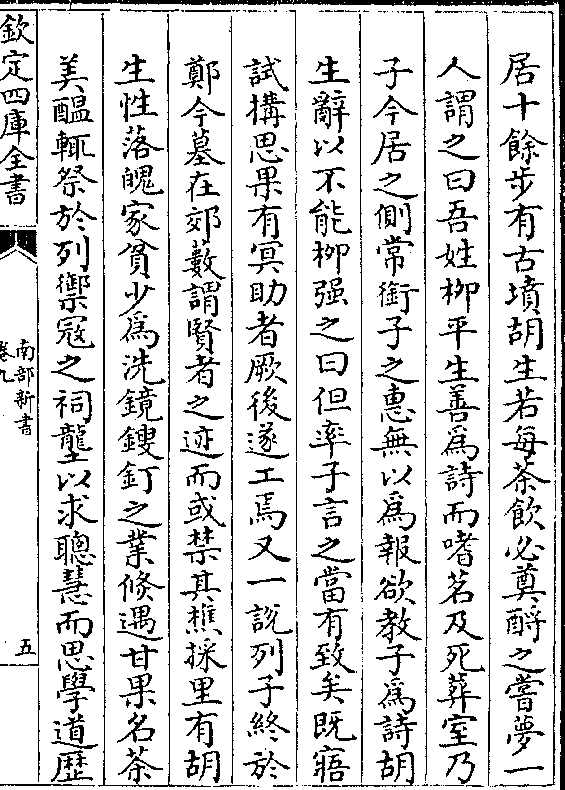 居十餘步有古墳胡生若每茶飲必奠酹之嘗夢一
人謂之曰吾姓柳平生善為詩而嗜茗及死葬室乃
子今居之側常銜子之惠無以為報欲教子為詩胡
生辭以不能柳强之曰但率子言之當有致矣既寤
試搆思果有冥助者厥後遂工焉又一說列子終於
鄭今墓在郊藪謂賢者之迹而或禁其樵採里有胡
生性落魄家貧少為洗鏡鎪釘之業倏遇甘果名茶
美醖輒祭於列禦冦之祠壟以求聰慧而思學道歴
欽定四庫全書
南部新書
卷九
五